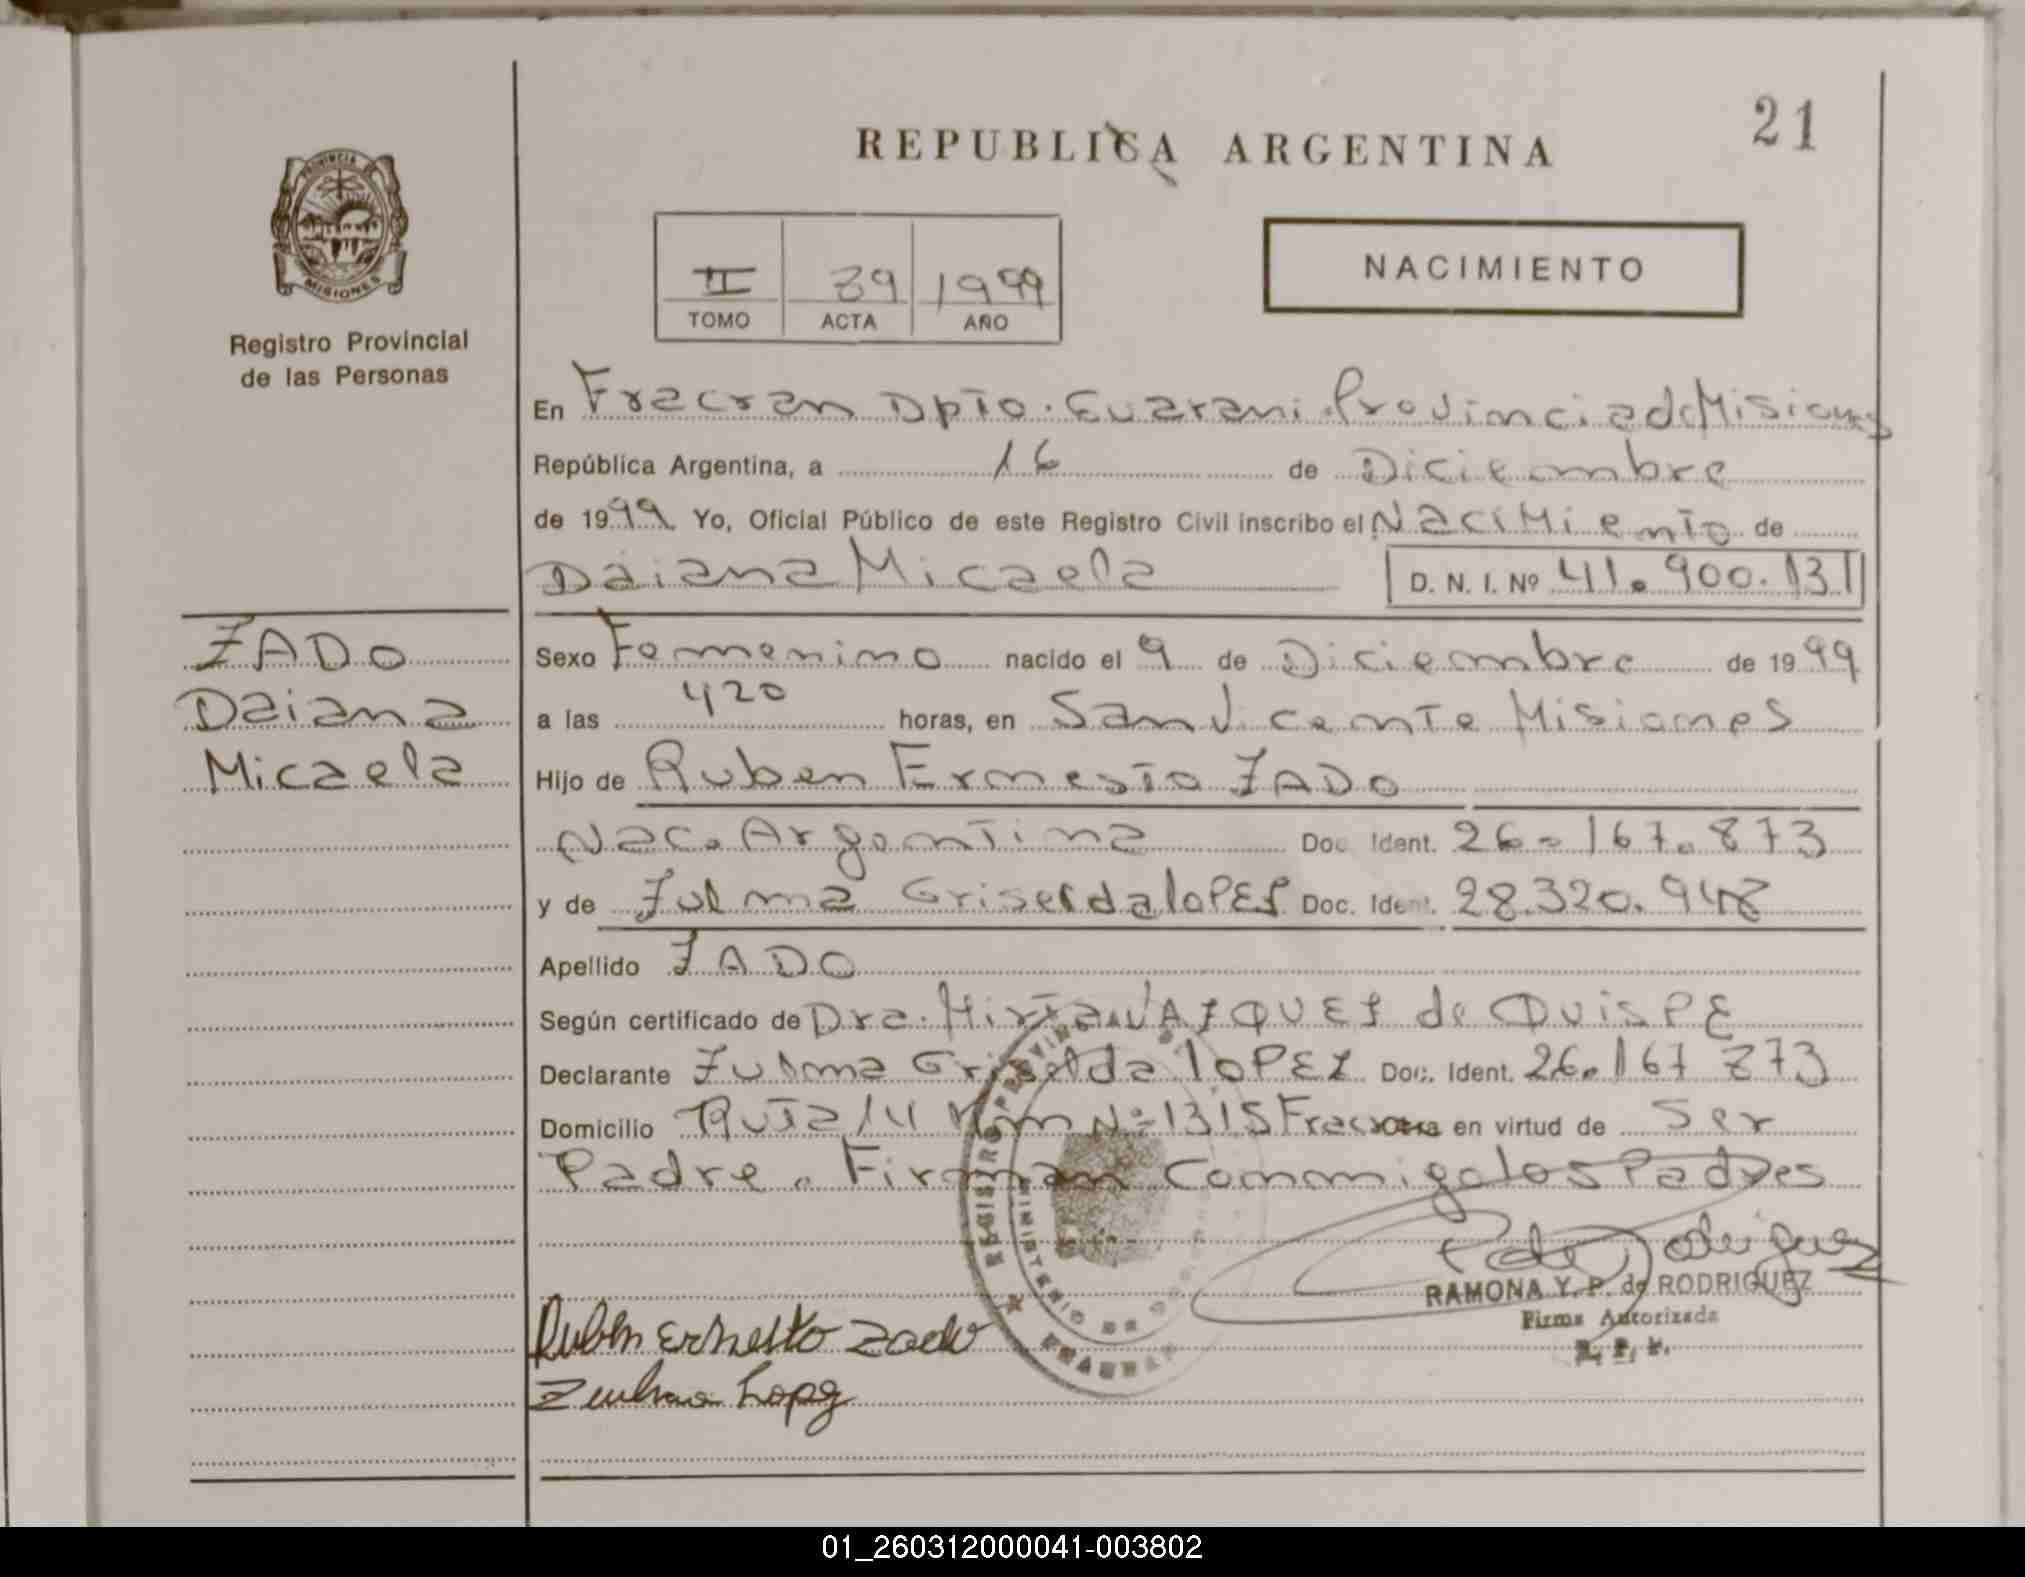 21
REPUBLICA ARGENTINA
PROVINCIA DE
MISIONES
Registro Provincial
de las Personas
II 39 1999
TOMO ACTA AÑO
NACIMIENTO
En Fracran Dpto. Guarani Provincia de Misiones
República Argentina, a 16 de Diciembre
de 1999 Yo, Oficial Público de este Registro Civil inscribo el Nacimiento de
Daiana Micaela D. N. I. Nº 41.900.131
ZADO
Daiana
Micaela
Sexo Femenino nacido el 9 de Diciembre de 1999
a las 420 horas, en San Vicente Misiones
Hijo de Ruben Ernesto ZADO
Nac. Argentina Doc. Ident. 26.167.873
y de Zulma Griselda LOPEZ Doc. Ident. 28.320.948
Apellido ZADO
Según certificado de Dra. Mirta VAZQUEZ de QUISPE
Declarante Zulma Griselda LOPEZ Doc. Ident. 26.167 873
Domicilio Ruta 14 Km Nº 1315 Fracran en virtud de Ser
Padre. Firman Conmigo los Padres
REGISTRO PROVIN
MINISTERIO DE
RAMONA Y. P. de RODRIGUEZ
Firma Autorizada
R. P. P.
Ruben Ernesto Zado
Zulma Lopez
01_260312000041-003802